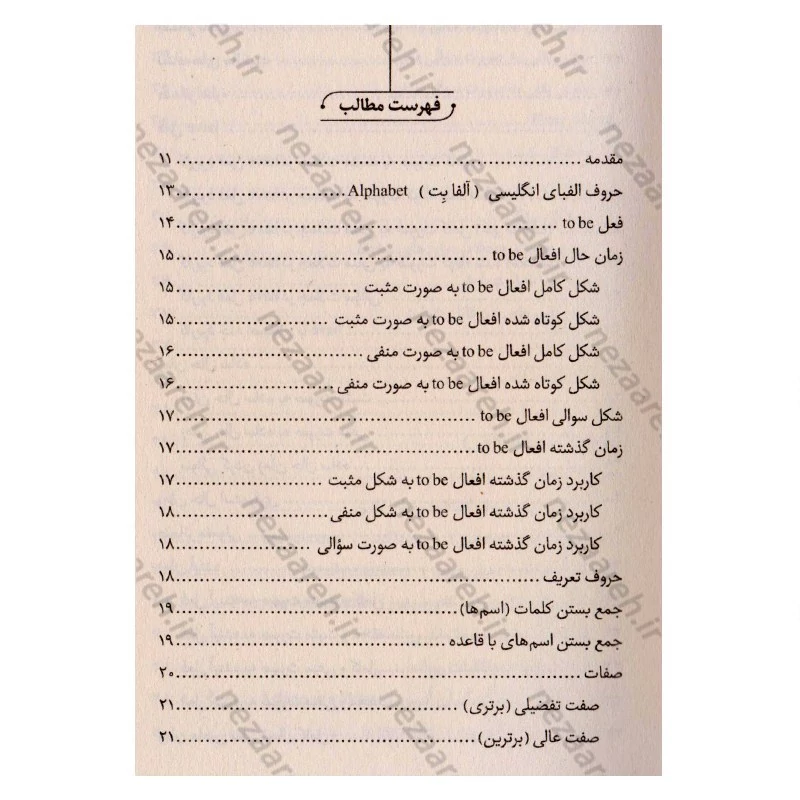 فهرست مطالب
مقدمه ............ ۱۱
حروف الفبای انگلیسی ( آلفا بِت ) Alphabet ............ ۱۳
فعل to be ............ ۱۴
زمان حال افعال to be ............ ۱۵
شکل کامل افعال to be به صورت مثبت ............ ۱۵
شکل کوتاه شده افعال to be به صورت مثبت ............ ۱۵
شکل کامل افعال to be به صورت منفی ............ ۱۶
شکل کوتاه شده افعال to be به صورت منفی ............ ۱۶
شکل سوالی افعال to be ............ ۱۷
زمان گذشته افعال to be ............ ۱۷
کاربرد زمان گذشته افعال to be به شکل مثبت ............ ۱۷
کاربرد زمان گذشته افعال to be به شکل منفی ............ ۱۸
کاربرد زمان گذشته افعال to be به صورت سؤالی ............ ۱۸
حروف تعریف ............ ۱۸
جمع بستن کلمات (اسم‌ها) ............ ۱۹
جمع بستن اسم‌های با قاعده ............ ۱۹
صفات ............ ۲۰
صفت تفضیلی (برتری) ............ ۲۱
صفت عالی (برترین) ............ ۲۱
nezaareh.ir